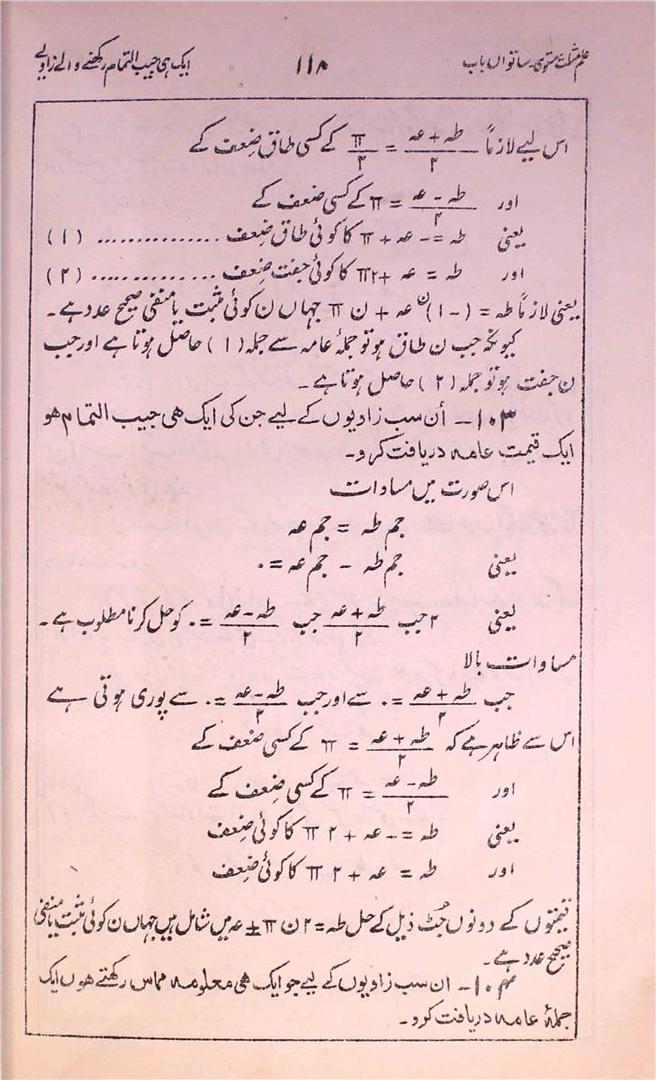 علم مثلث مستوی۔ ساتواں باب ۱۱۸ ایک ہی جیب التمام رکھنے والے زاویے
اس لیے لازماً (طہ + عہ)/۲ = π/۲ کے کسی طاق ضِعف کے
اور (طہ - عہ)/۲ = π کے کسی ضعف کے
یعنی طہ = - عہ + π کا کوئی طاق ضِعف .............. (۱)
اور طہ = عہ + ۲π کا کوئی جفت ضِعف .............. (۲)
یعنی لازماً طہ = (-۱)^ن عہ + ن π جہاں ن کوئی مثبت یا منفی صحیح عدد ہے۔
کیونکہ جب ن طاق ہو تو جملۂ عامہ سے جملہ (۱) حاصل ہوتا ہے اور جب
ن جفت ہو تو جملہ (۲) حاصل ہوتا ہے۔
۱۰۳۔ اُن سب زاویوں کے لیے جن کی ایک ہی جیب التمام ہو
ایک قیمت عامہ دریافت کرو۔
اس صورت میں مساوات
جم طہ = جم عہ
یعنی جم طہ - جم عہ = ۰
یعنی ۲ جیب (طہ + عہ)/۲ جب (طہ - عہ)/۲ = ۰ کو حل کرنا مطلوب ہے۔
مساوات بالا
جب (طہ + عہ)/۲ = ۰ سے اور جب (طہ - عہ)/۲ = ۰ سے پوری ہوتی ہے
اس سے ظاہر ہے کہ (طہ + عہ)/۲ = π کے کسی ضعف کے
اور (طہ - عہ)/۲ = π کے کسی ضِعف کے
یعنی طہ = - عہ + ۲ π کا کوئی ضِعف
اور طہ = عہ + ۲ π کا کوئی ضِعف
قیمتوں کے دونوں جُٹ ذیل کے حل طہ = ۲ ن π ± عہ میں شامل ہیں جہاں ن کوئی مثبت یا منفی
صحیح عدد ہے۔
۱۰۴۔ ان سب زاویوں کے لیے جو ایک ہی معلومہ مماس رکھتے ہوں ایک
جملۂ عامہ دریافت کرو۔